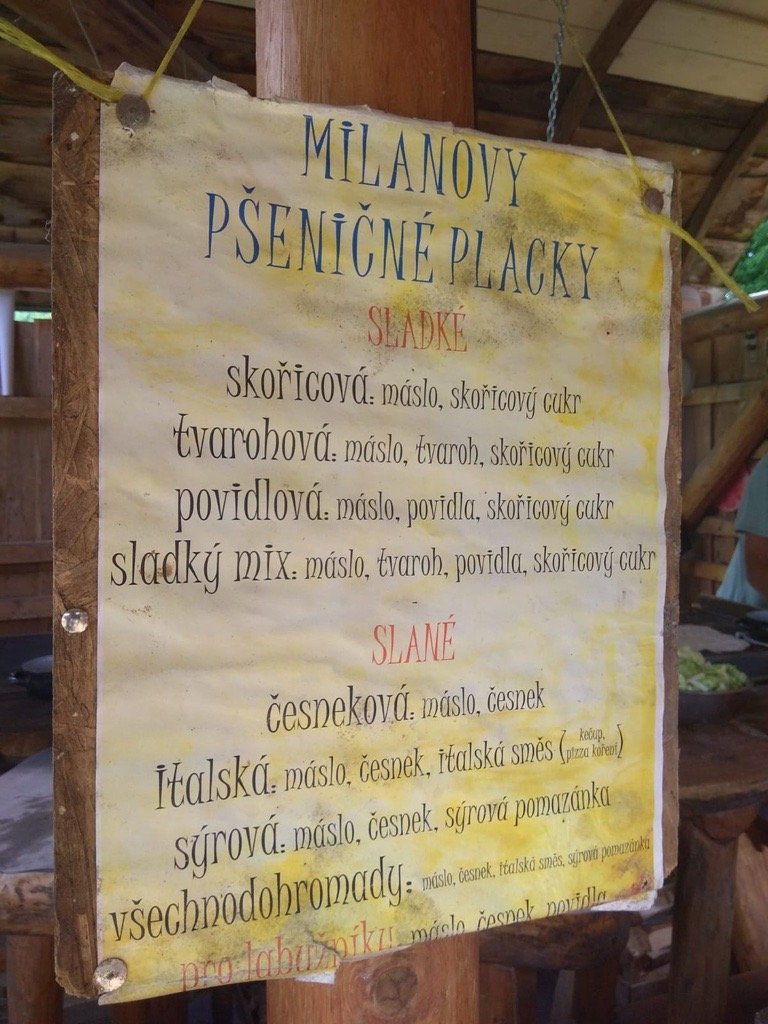 MILANOVY
PŠENIČNÉ PLACKY
SLADKÉ
skořicová: máslo, skořicový cukr
tvarohová: máslo, tvaroh, skořicový cukr
povidlová: máslo, povidla, skořicový cukr
sladký mix: máslo, tvaroh, povidla, skořicový cukr
SLANÉ
česneková: máslo, česnek
italská: máslo, česnek, italská směs (kečup, pizza koření)
sýrová: máslo, česnek, sýrová pomazánka
všechnodohromady: máslo, česnek, italská směs, sýrová pomazánka
pro labužníky: máslo, česnek, povidla